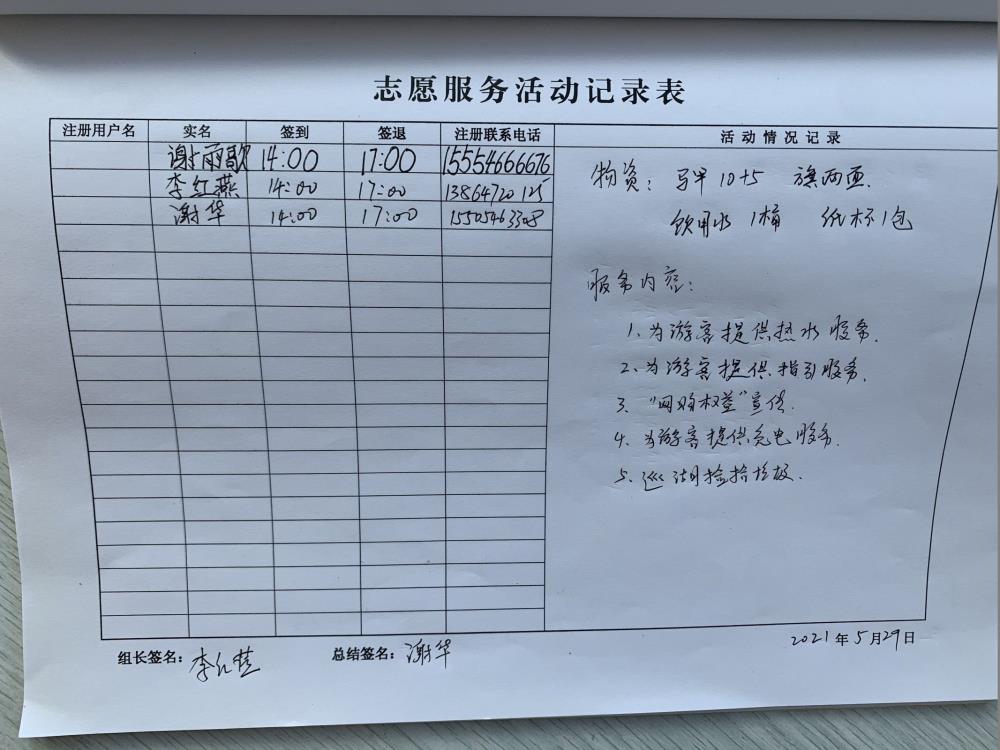 志愿服务活动记录表
注册用户名 实名 签到 签退 注册联系电话 活动情况记录
谢雨歌 14:00 17:00 15554666676
李红燕 14:00 17:00 13864720125
谢华 14:00 17:00 15505463308
物资: 马甲10+5 旗两面.
饮用水1桶 纸杯1包
服务内容:
1、为游客提供热水服务.
2、为游客提供指引服务.
3、"网购权益"宣传.
4、为游客提供充电服务.
5、巡湖捡拾垃圾.
2021年5月29日
组长签名: 李红燕 总结签名: 谢华